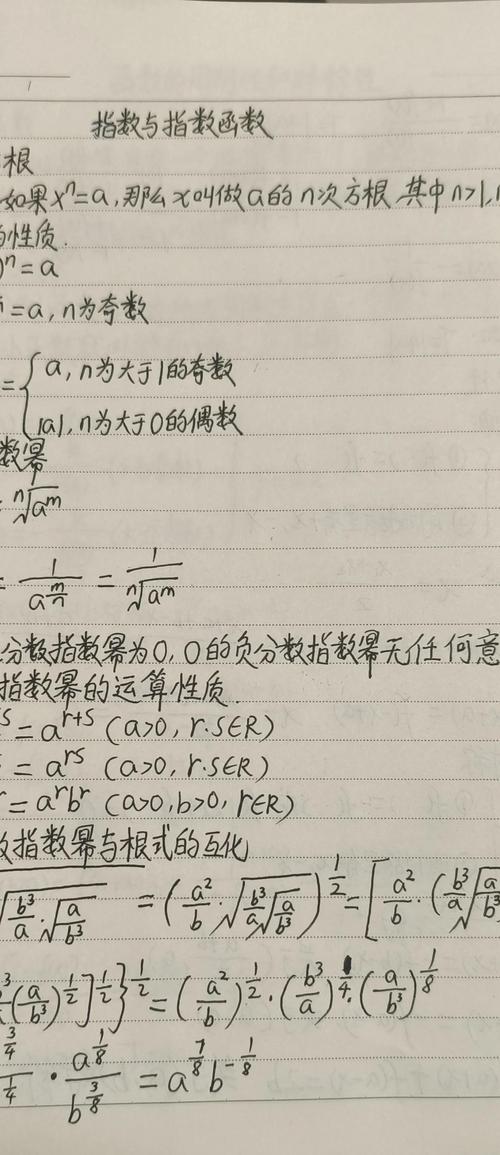 指数与指数函数
根
如果xⁿ=a,那么x叫做a的n次方根,其中n>1,
的性质.
)ⁿ=a
=a,n为奇数
={a,n为大于1的奇数
|a|,n为大于0的偶数
数幂
=ⁿ√(a^m)
=1/a^(m/n)=1/ⁿ√(a^m)
分数指数幂为0,0的负分数指数幂无任何意
指数幂的运算性质.
^s=a^(r+s)(a>0,r.s∈R)
=a^(rs)(a>0,r.s∈R)
^r=a^r b^r(a>0,b>0,r∈R)
指数幂与根式的互化
√(b³/a·√(a/b³))=(a²/b·√(b³/a√(a/b³)))^(1/2)=[a²/b·(b³/a√(a/b³
(a/b³)^(1/2)]^(1/2)}^(1/2)=(a²/b)^(1/2)·(b³/a)^(1/4)·(a/b³)^(1/8)
^(3/4)/^(1/4)·a^(1/8)/b^(3/8)=a^(7/8)b^(-1/8)